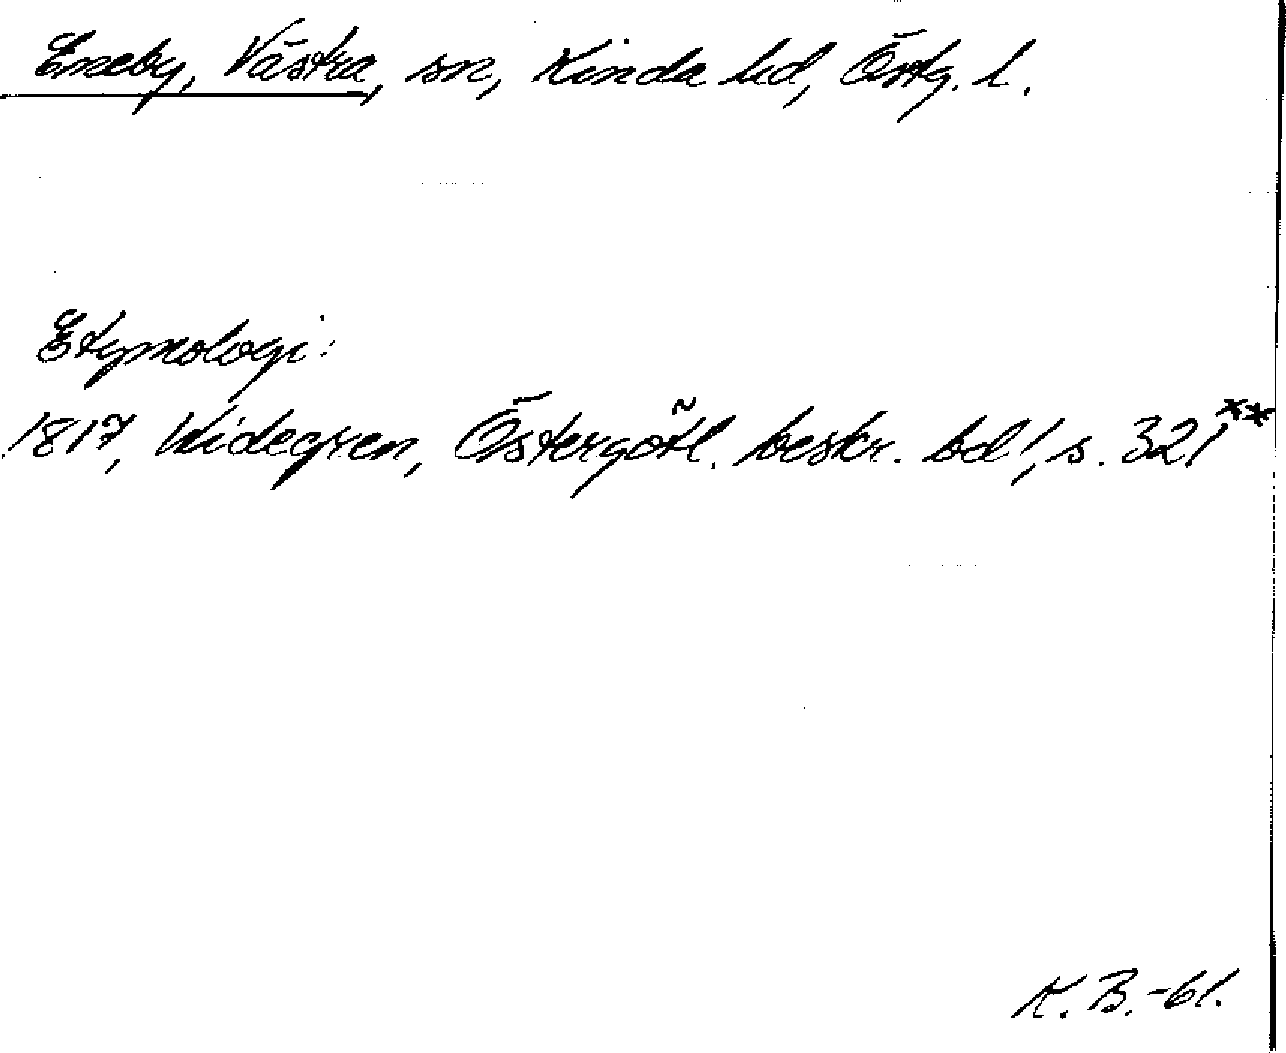 Eneby, Västra, sn, Kinda hd, Östg. l.
Etymologi:
1817, Widegren, Östergötl. beskr. bd 1, s. 321**
K. B. -61.